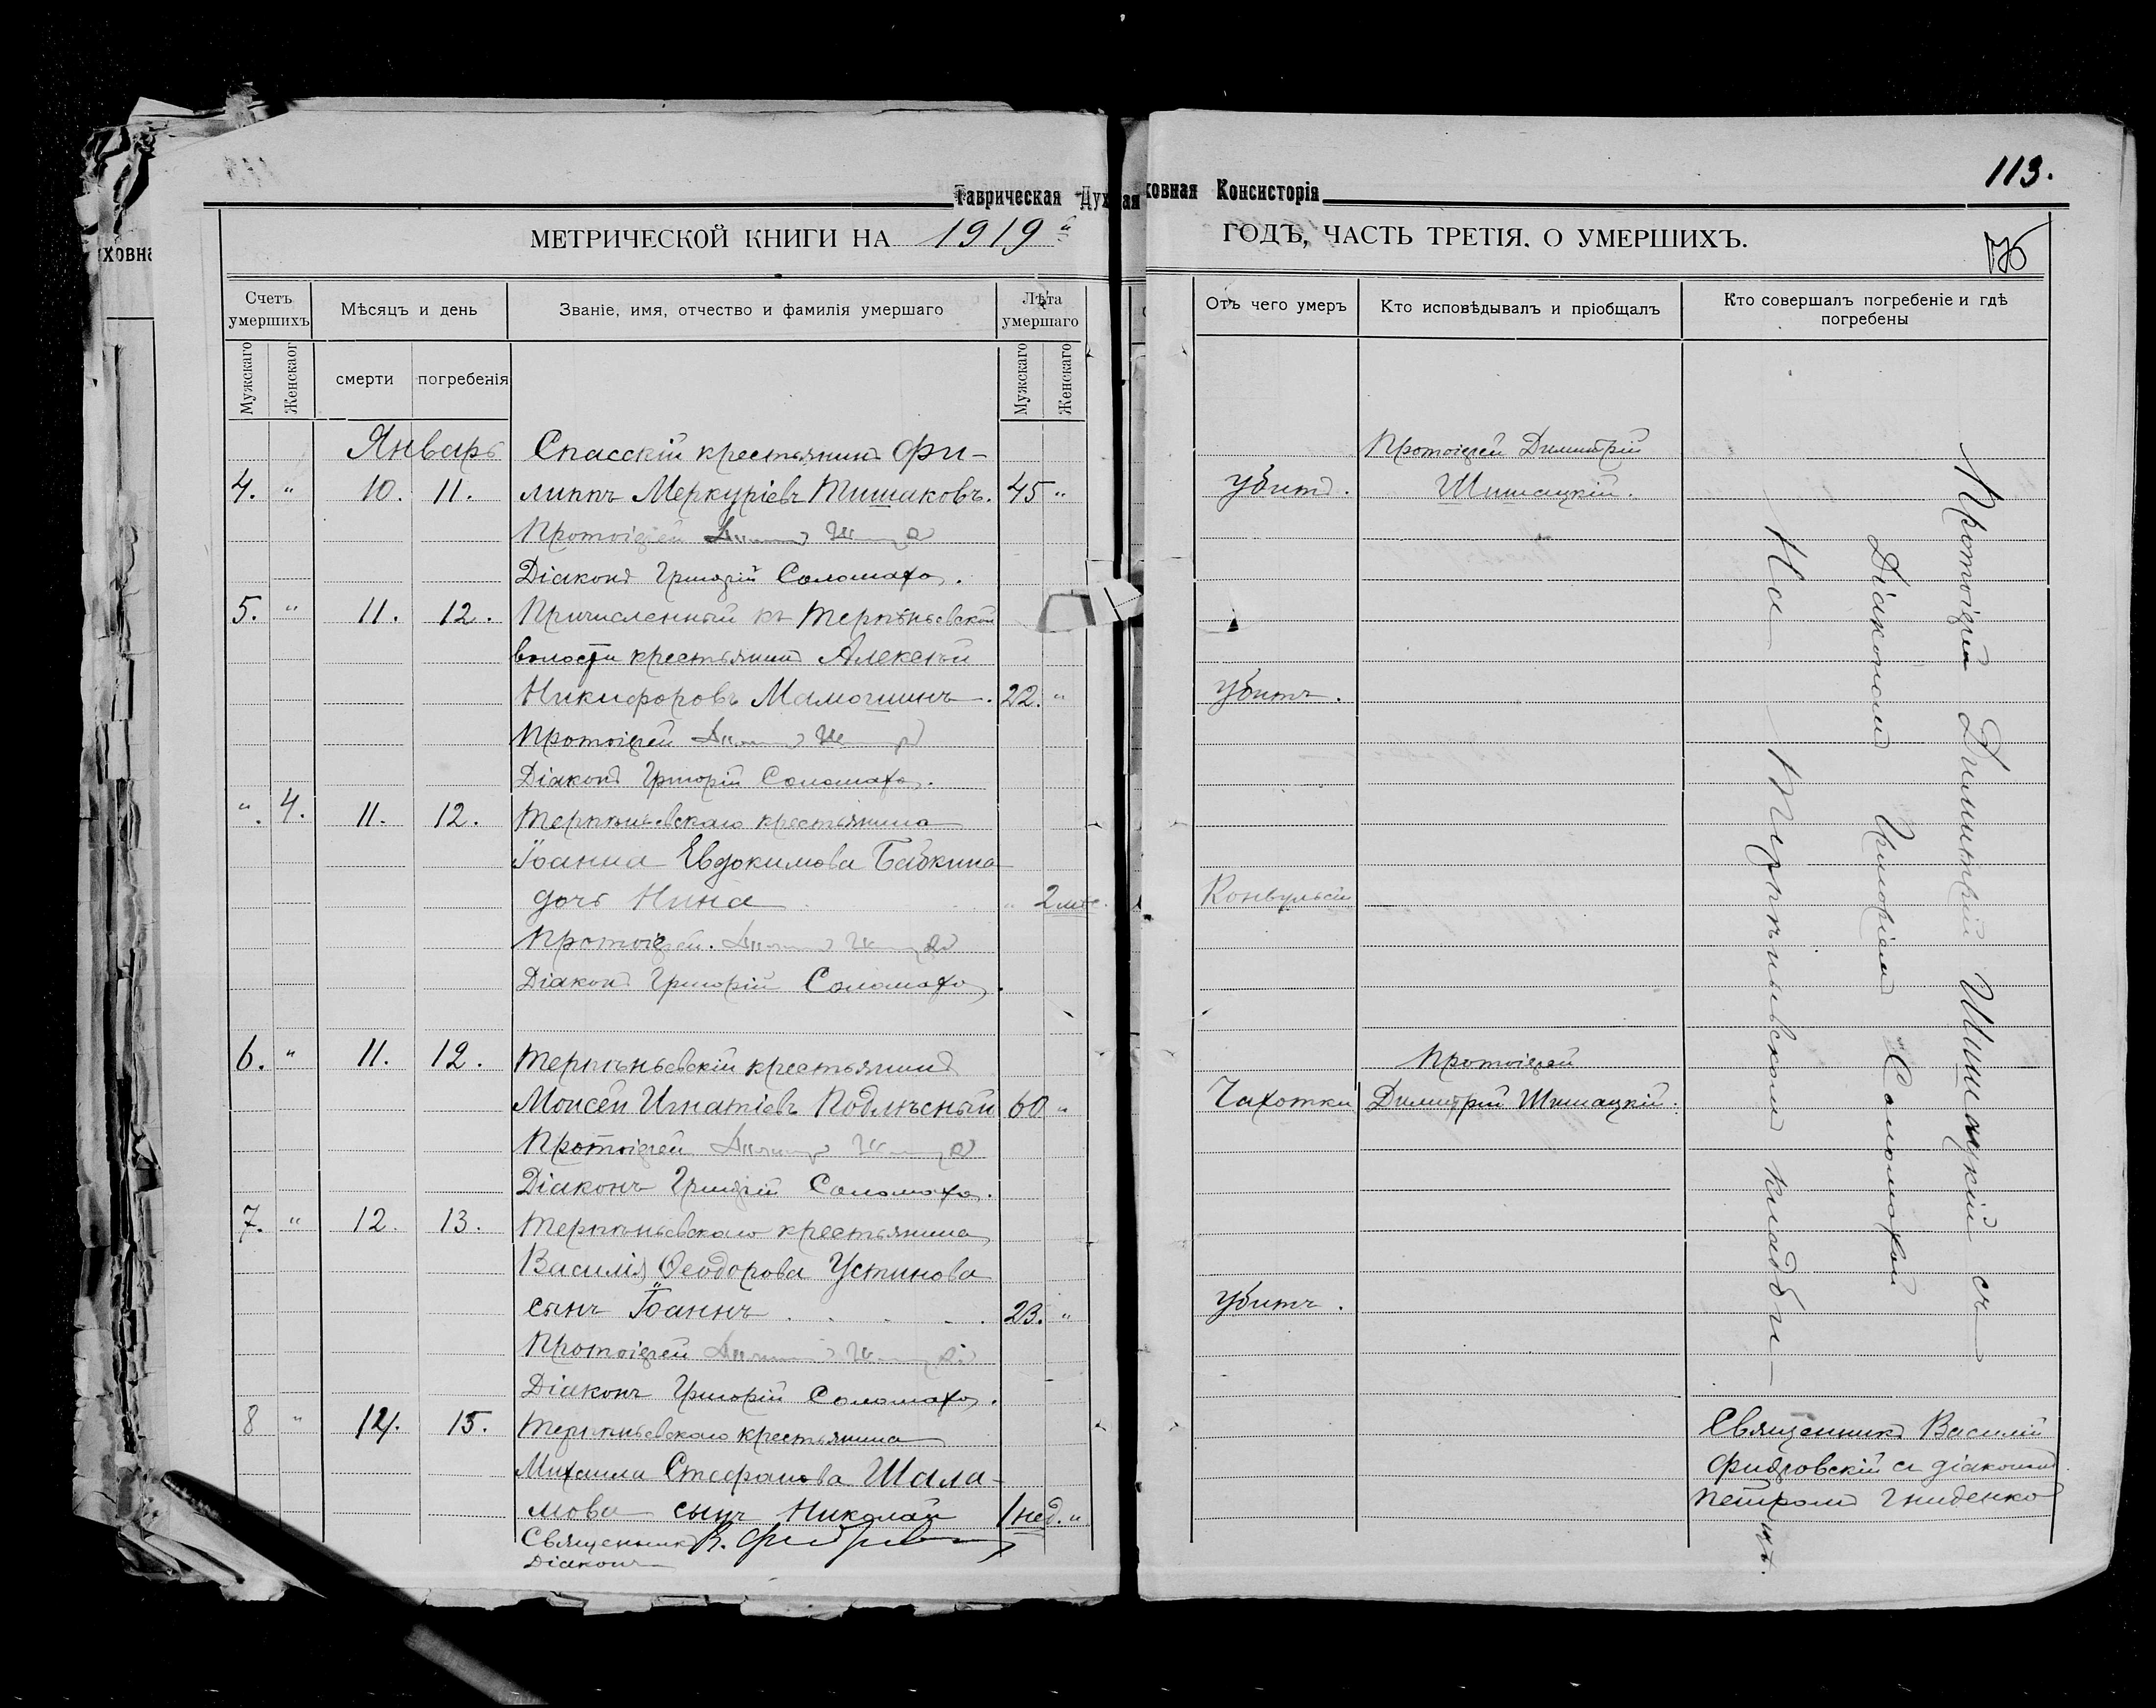 113.
Таврическая Духовная Консисторія
МЕТРИЧЕСКОЙ КНИГИ НА 1919й ГОДЪ, ЧАСТЬ ТРЕТІЯ, О УМЕРШИХЪ.
Счетъ умершихъ
Мѣсяцъ и день
Званіе, имя, отчество и фамилія умершаго
Лѣта умершаго
Отъ чего умеръ
Кто исповѣдывалъ и пріобщалъ
Кто совершалъ погребеніе и гдѣ погребены
Мужскаго
Женскаог
смерти
погребенія
Мужскаго
Женскаго
Январь Спасскій крестьянинъ Фи-
Протоіерей Димитрій
4. " 10. 11. липпъ Меркуріевъ Тишаковъ. 45 " убитъ. Шишацкій.
Протоіерей
Діаконъ Григорій Соломаха.
5. " 11. 12. Причисленный къ Терпѣньевской
волости крестьянинъ Алексѣй
Никифоровъ Мамошинъ. 22. " убитъ.
Протоіерей
Діаконъ Григорій Соломаха.
". 4. 11. 12. Терпѣньевскаго крестьянина
Іоанна Евдокимова Бабкина
дочь Нина " 2 мѣс. Конвульсіи —
Протоіерей.
Діаконъ Григорій Соломаха.
6. " 11. 12. Терпѣньевскій крестьянинъ
Протоіерей
Моисей Игнатіевъ Подлѣсный 60 " Чахотки Димитрій Шишацкій.
Протоіерей
Діаконъ Григорій Соломаха.
7. " 12. 13. Терпѣньевскаго крестьянина
Василія Ѳеодорова Устинова
сынъ Іоаннъ 23. " убитъ.
Протоіерей
Діаконъ Григорій Соломаха.
8 " 14. 15. Терпѣньевскаго крестьянина
Михаила Стефанова Шала-
мова сынъ Николай 1 нед. "
Священникъ В.
Діаконъ
Протоіерей Димитрій Шишацкій съ
Діакономъ Григоріемъ Соломахой
На Терпѣньевскомъ кладби-
щѣ.
Священникъ Василій
съ діакономъ
Петромъ Гниденко